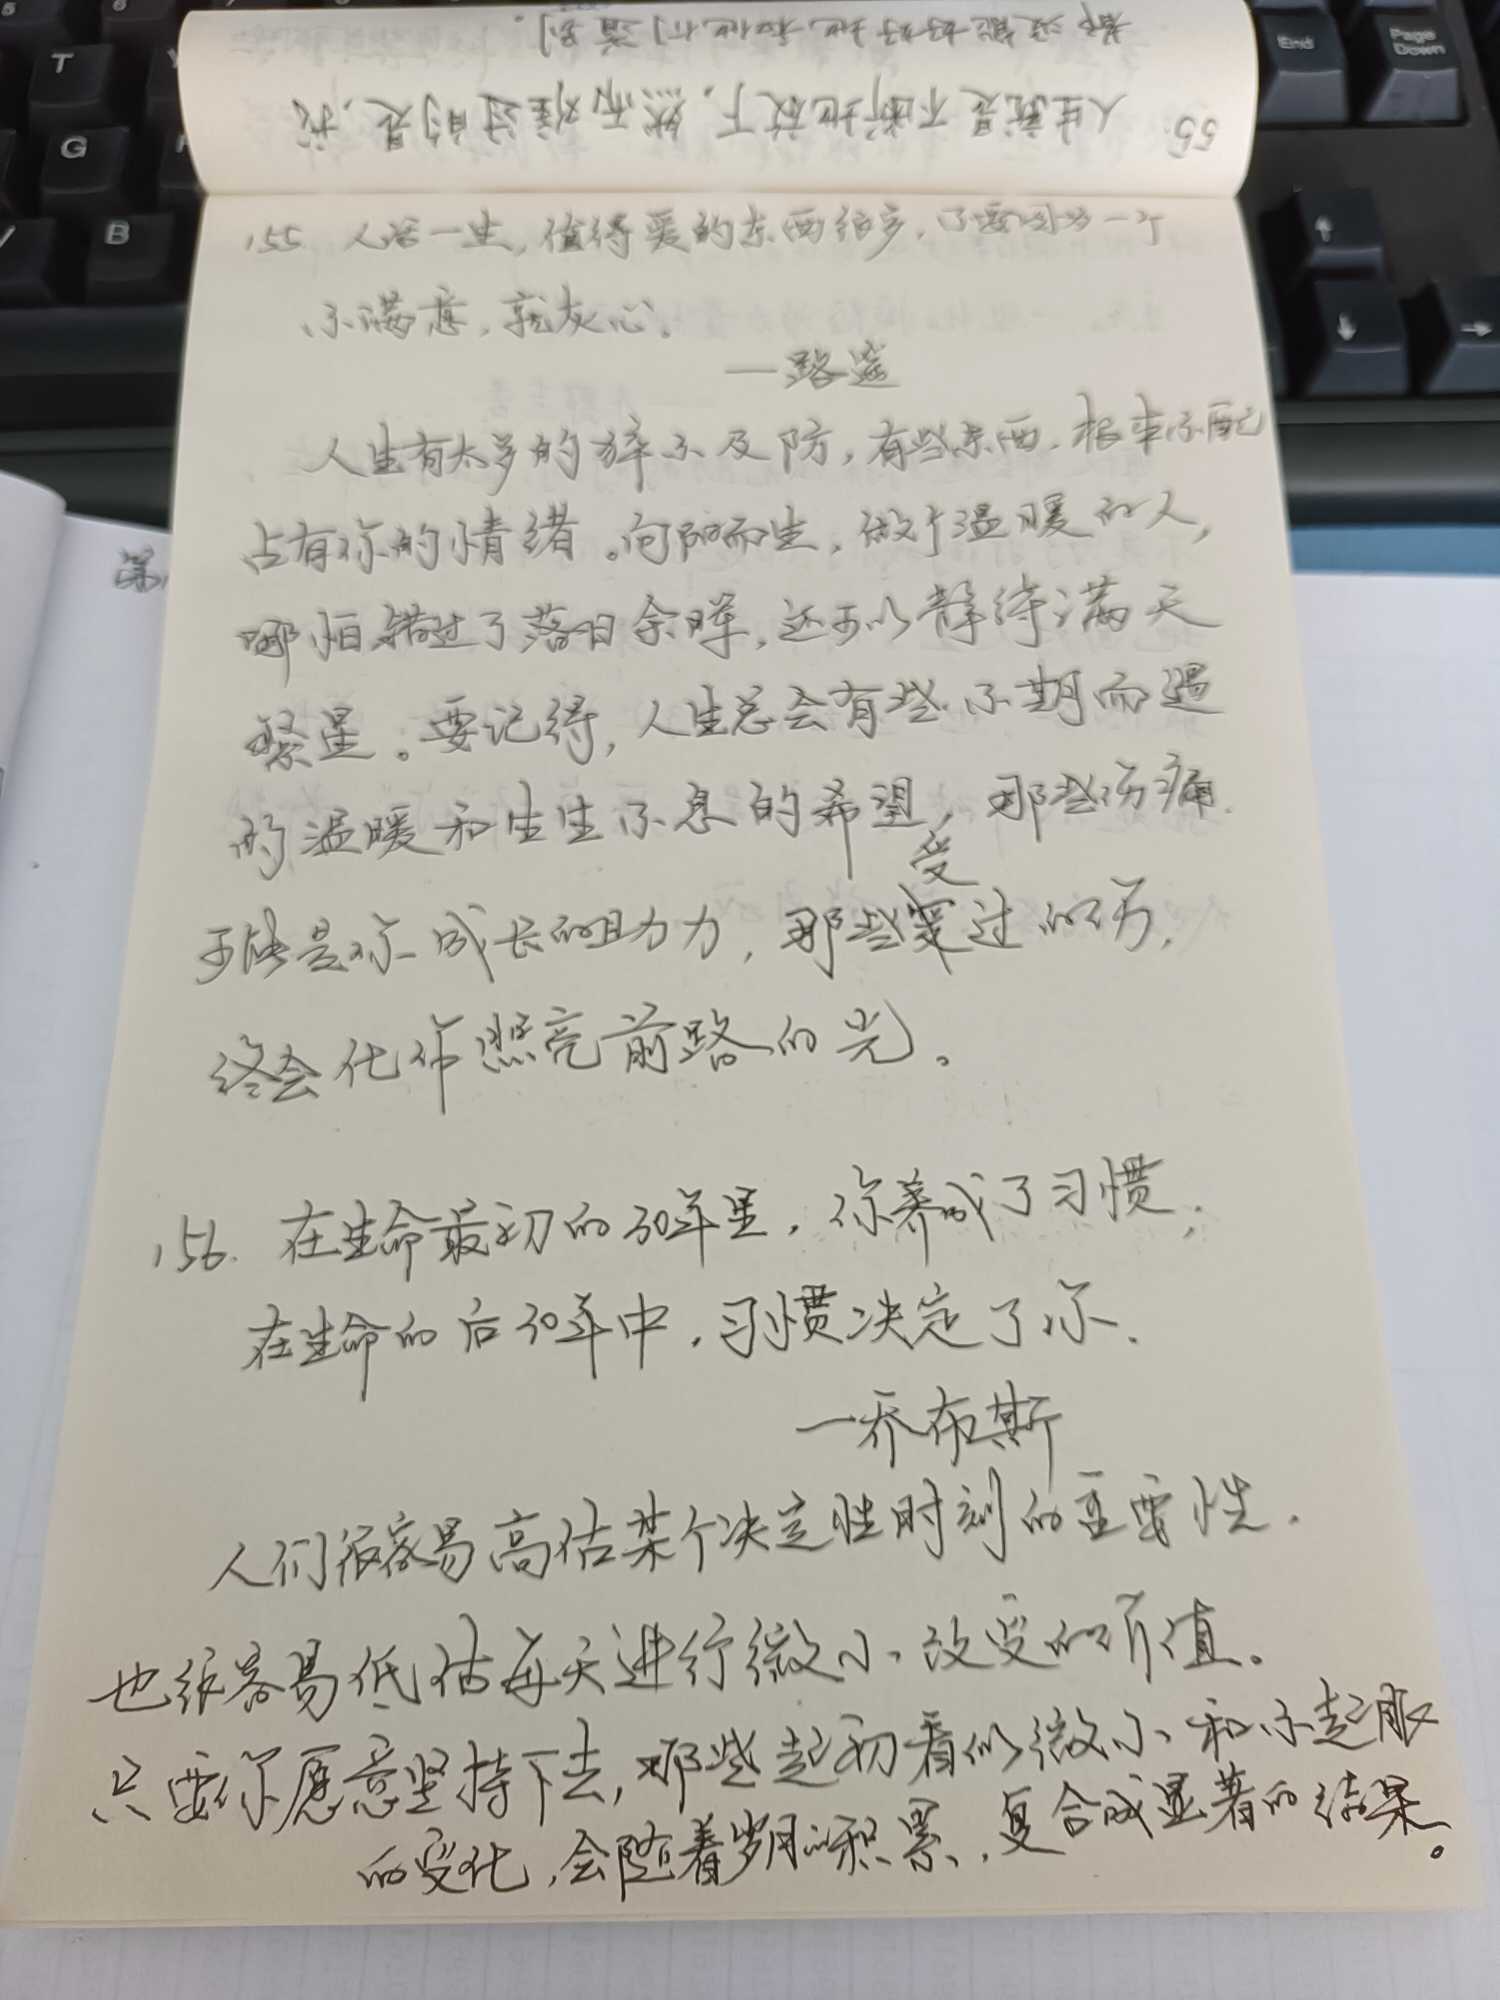 55. 人生就是不断地放下，然而难过的是，我
都没能好好地和他们道别。
155. 人活一生，值得爱的东西很多，不要因为一个
不满意，就灰心。
—路遥
人生有太多的猝不及防，有些东西，根本不配
占有你的情绪。向阳而生，做个温暖的人，
哪怕错过了落日余晖，还可以静待满天
繁星。要记得，人生总会有些不期而遇
的温暖和生生不息的希望，那些伤痛
可能是你成长的助力，那些受过的伤，
终会化作照亮前路的光。
156. 在生命最初的30年里，你养成了习惯；
在生命的后30年中，习惯决定了你.
—乔布斯
人们很容易高估某个决定性时刻的重要性.
也很容易低估每天进行微小改变的价值。
只要你愿意坚持下去，那些起初看似微小和不起眼
的变化，会随着岁月的积累，复合成显著的结果。
第
T
G
B
End
Page Down